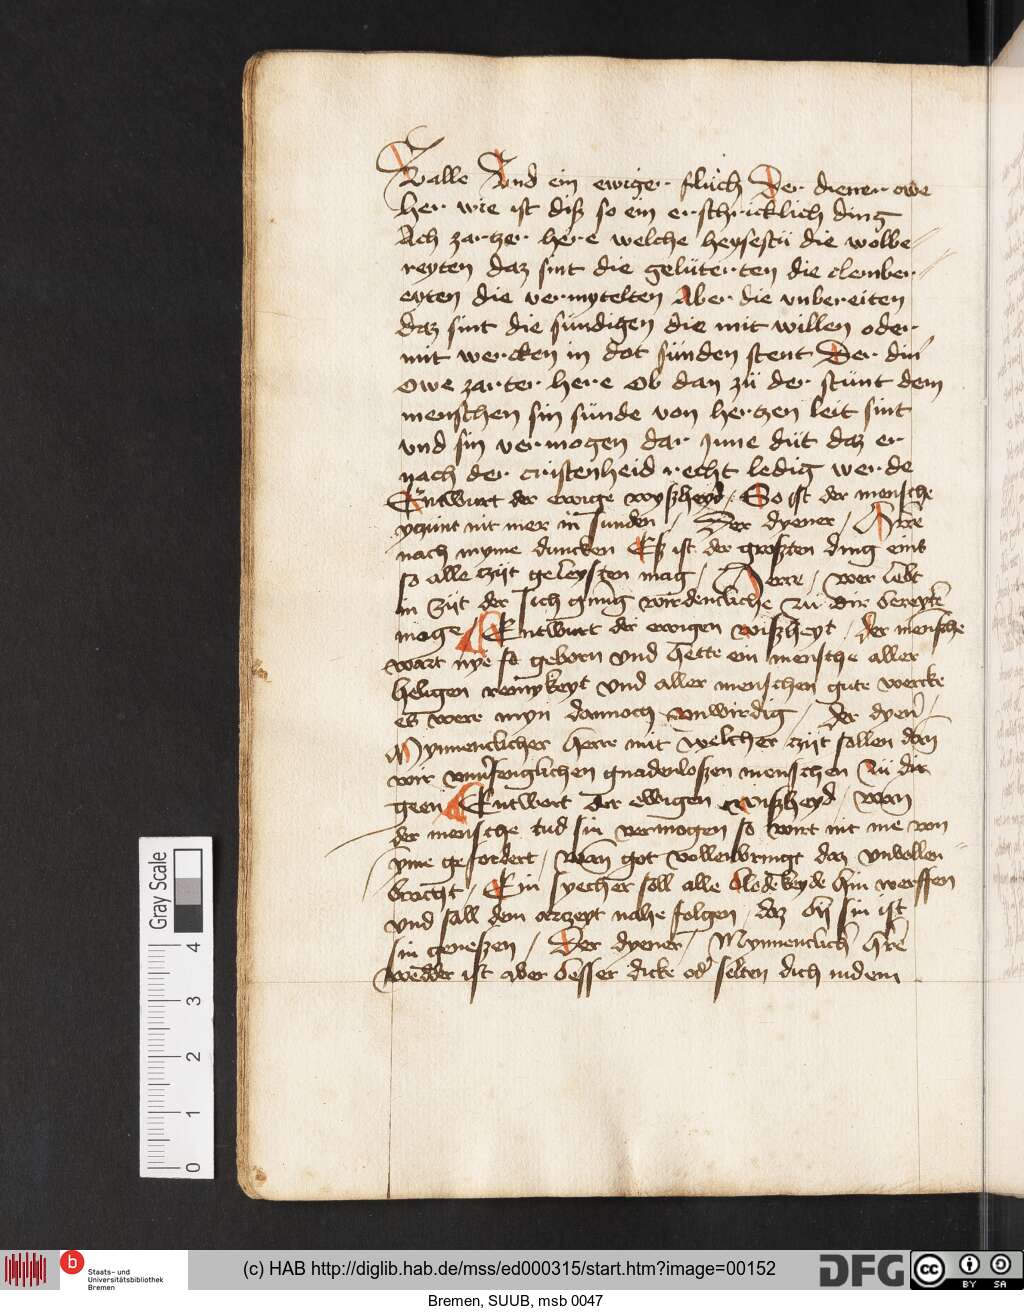 Galle Vnd ein ewiger fluch Der diener owe
her wie ist diß so ein erschricklich ding
Ach zarter here welche heysestu die wolbe
reyten daz sint die gelüterten die
eyten die vermytelten Aber die vnbereiten
daz sint die sündigen die mit willen oder
mit wercken in dot sünden stent Der din
owe zarter here Ob dan zü der stünt dem
menschen sin sünde von hertzen leit sint
vnd sin vermogen dar Inne düt daz er
nach der cristenheid recht ledig werde
Entwurt der ewige wyßheyd So ist der mensche
yczünt nit mer in sunden Der dyener Herre
nach myme duncken Eß ist der großten ding eins
so alle zijt geleysten mag Herre wer lebt
in zijt der sich gnüg wirdencliche zu dir bereyte
moge Entwurt der ewigen wißheyt der mensche
wart nye so geborn vnd hette ein mensche aller
heligen reinykeyt vnd aller menschen gute wercke
es were myn dannoch vnwirdig der dyen
Mynnenclicher herre mit welcher zijt sollen dan
wir gnadenloszen menschen zü dir
geen Entwort der ewigen wißheyd wan
der mensche tud sin vermogen so wirt nit me von
yme gefordert wan got vollenbringt daz vnvollen
bracht Ein siecher soll alle blodekeyde hin werffen
vnd sall dem arczeyt nahe folgen daz by sin ist
sin geneszen Der dyener Mynnenclich here
wedder ist aber besser dicke od selten dich indem
Gray Scale
4
3
2
1
0
b
Staats- und
Universitätsbibliothek
Bremen
(c) HAB http://diglib.hab.de/mss/ed000315/start.htm?image=00152
DFG
cc BY SA
Bremen, SUUB, msb 0047